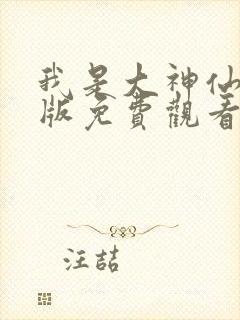 我是大神仙
版免費觀看
汪喆